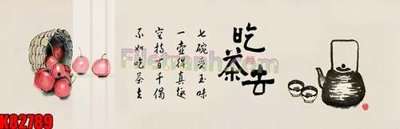 吃茶去
七碗受至味
一壶得真趣
空持百千偈
不如吃茶去
K02789